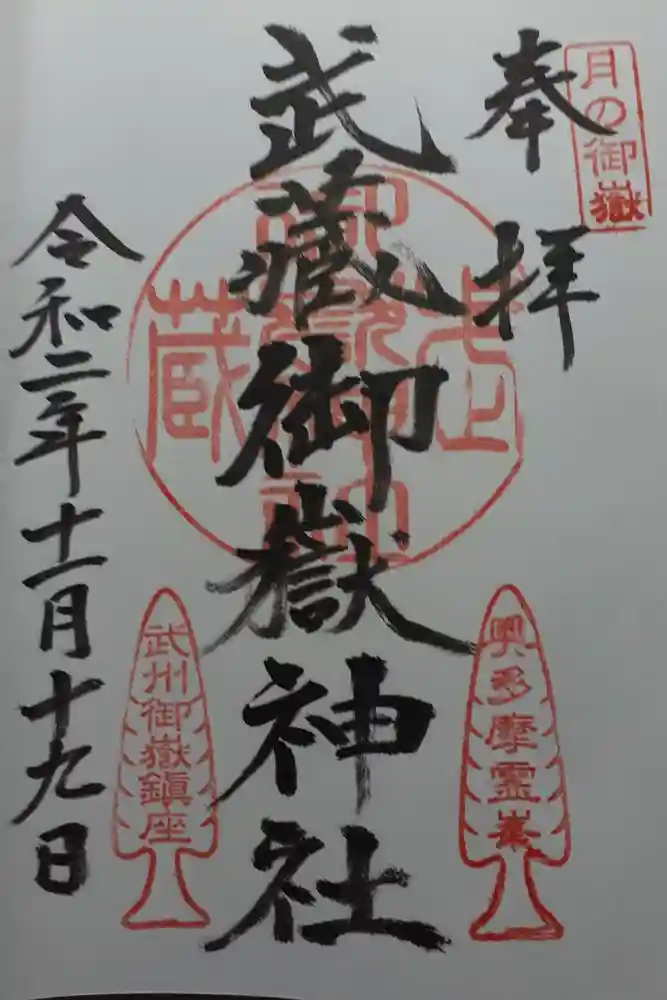 月の御嶽
奉拝
武蔵御嶽神社
奥多摩霊峯
武州御嶽鎮座
令和二年十一月十九日